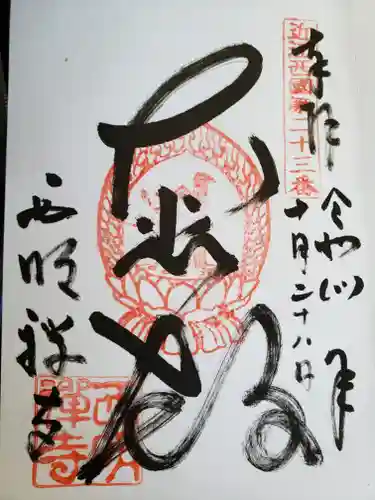 奉拝
近江西國第二十三番
令和三年
十月二十八日
西明禅寺
西明禪寺